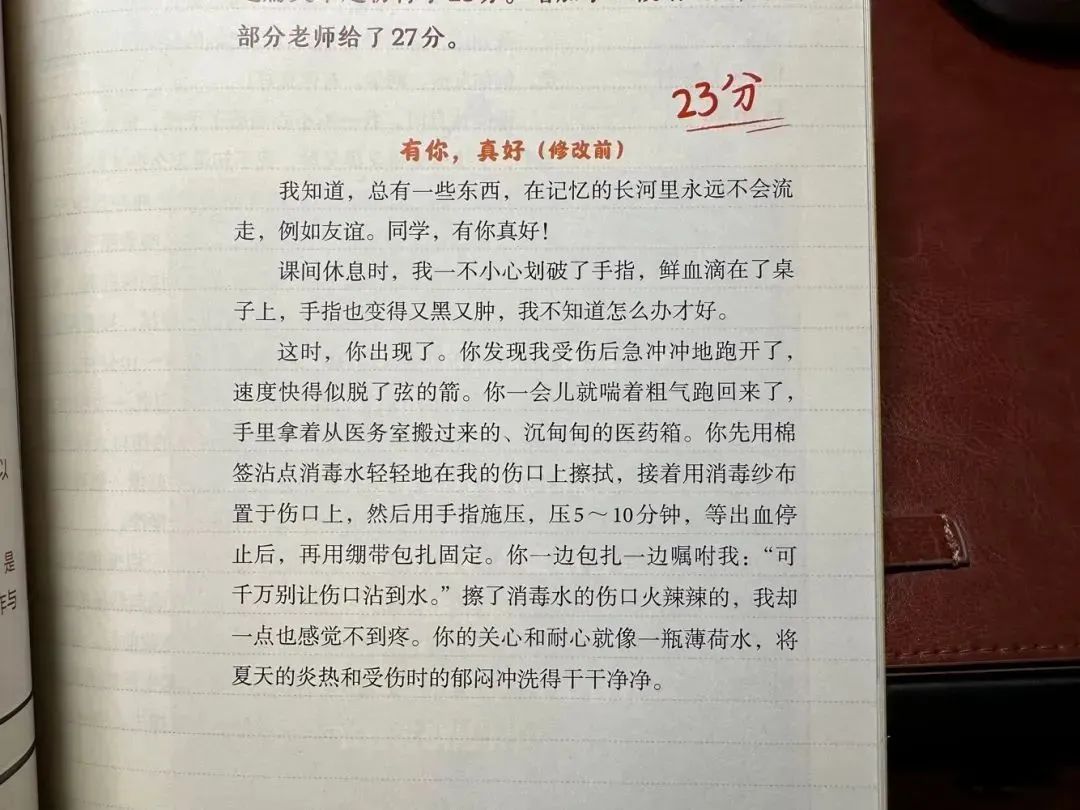 部分老师给了27分。
23分
有你，真好（修改前）
我知道，总有一些东西，在记忆的长河里永远不会流
走，例如友谊。同学，有你真好！
课间休息时，我一不小心划破了手指，鲜血滴在了桌
子上，手指也变得又黑又肿，我不知道怎么办才好。
这时，你出现了。你发现我受伤后急冲冲地跑开了，
速度快得似脱了弦的箭。你一会儿就喘着粗气跑回来了，
手里拿着从医务室搬过来的、沉甸甸的医药箱。你先用棉
签沾点消毒水轻轻地在我的伤口上擦拭，接着用消毒纱布
置于伤口上，然后用手指施压，压5～10分钟，等出血停
止后，再用绷带包扎固定。你一边包扎一边嘱咐我：“可
千万别让伤口沾到水。”擦了消毒水的伤口火辣辣的，我却
一点也感觉不到疼。你的关心和耐心就像一瓶薄荷水，将
夏天的炎热和受伤时的郁闷冲洗得干干净净。
以
是
作与